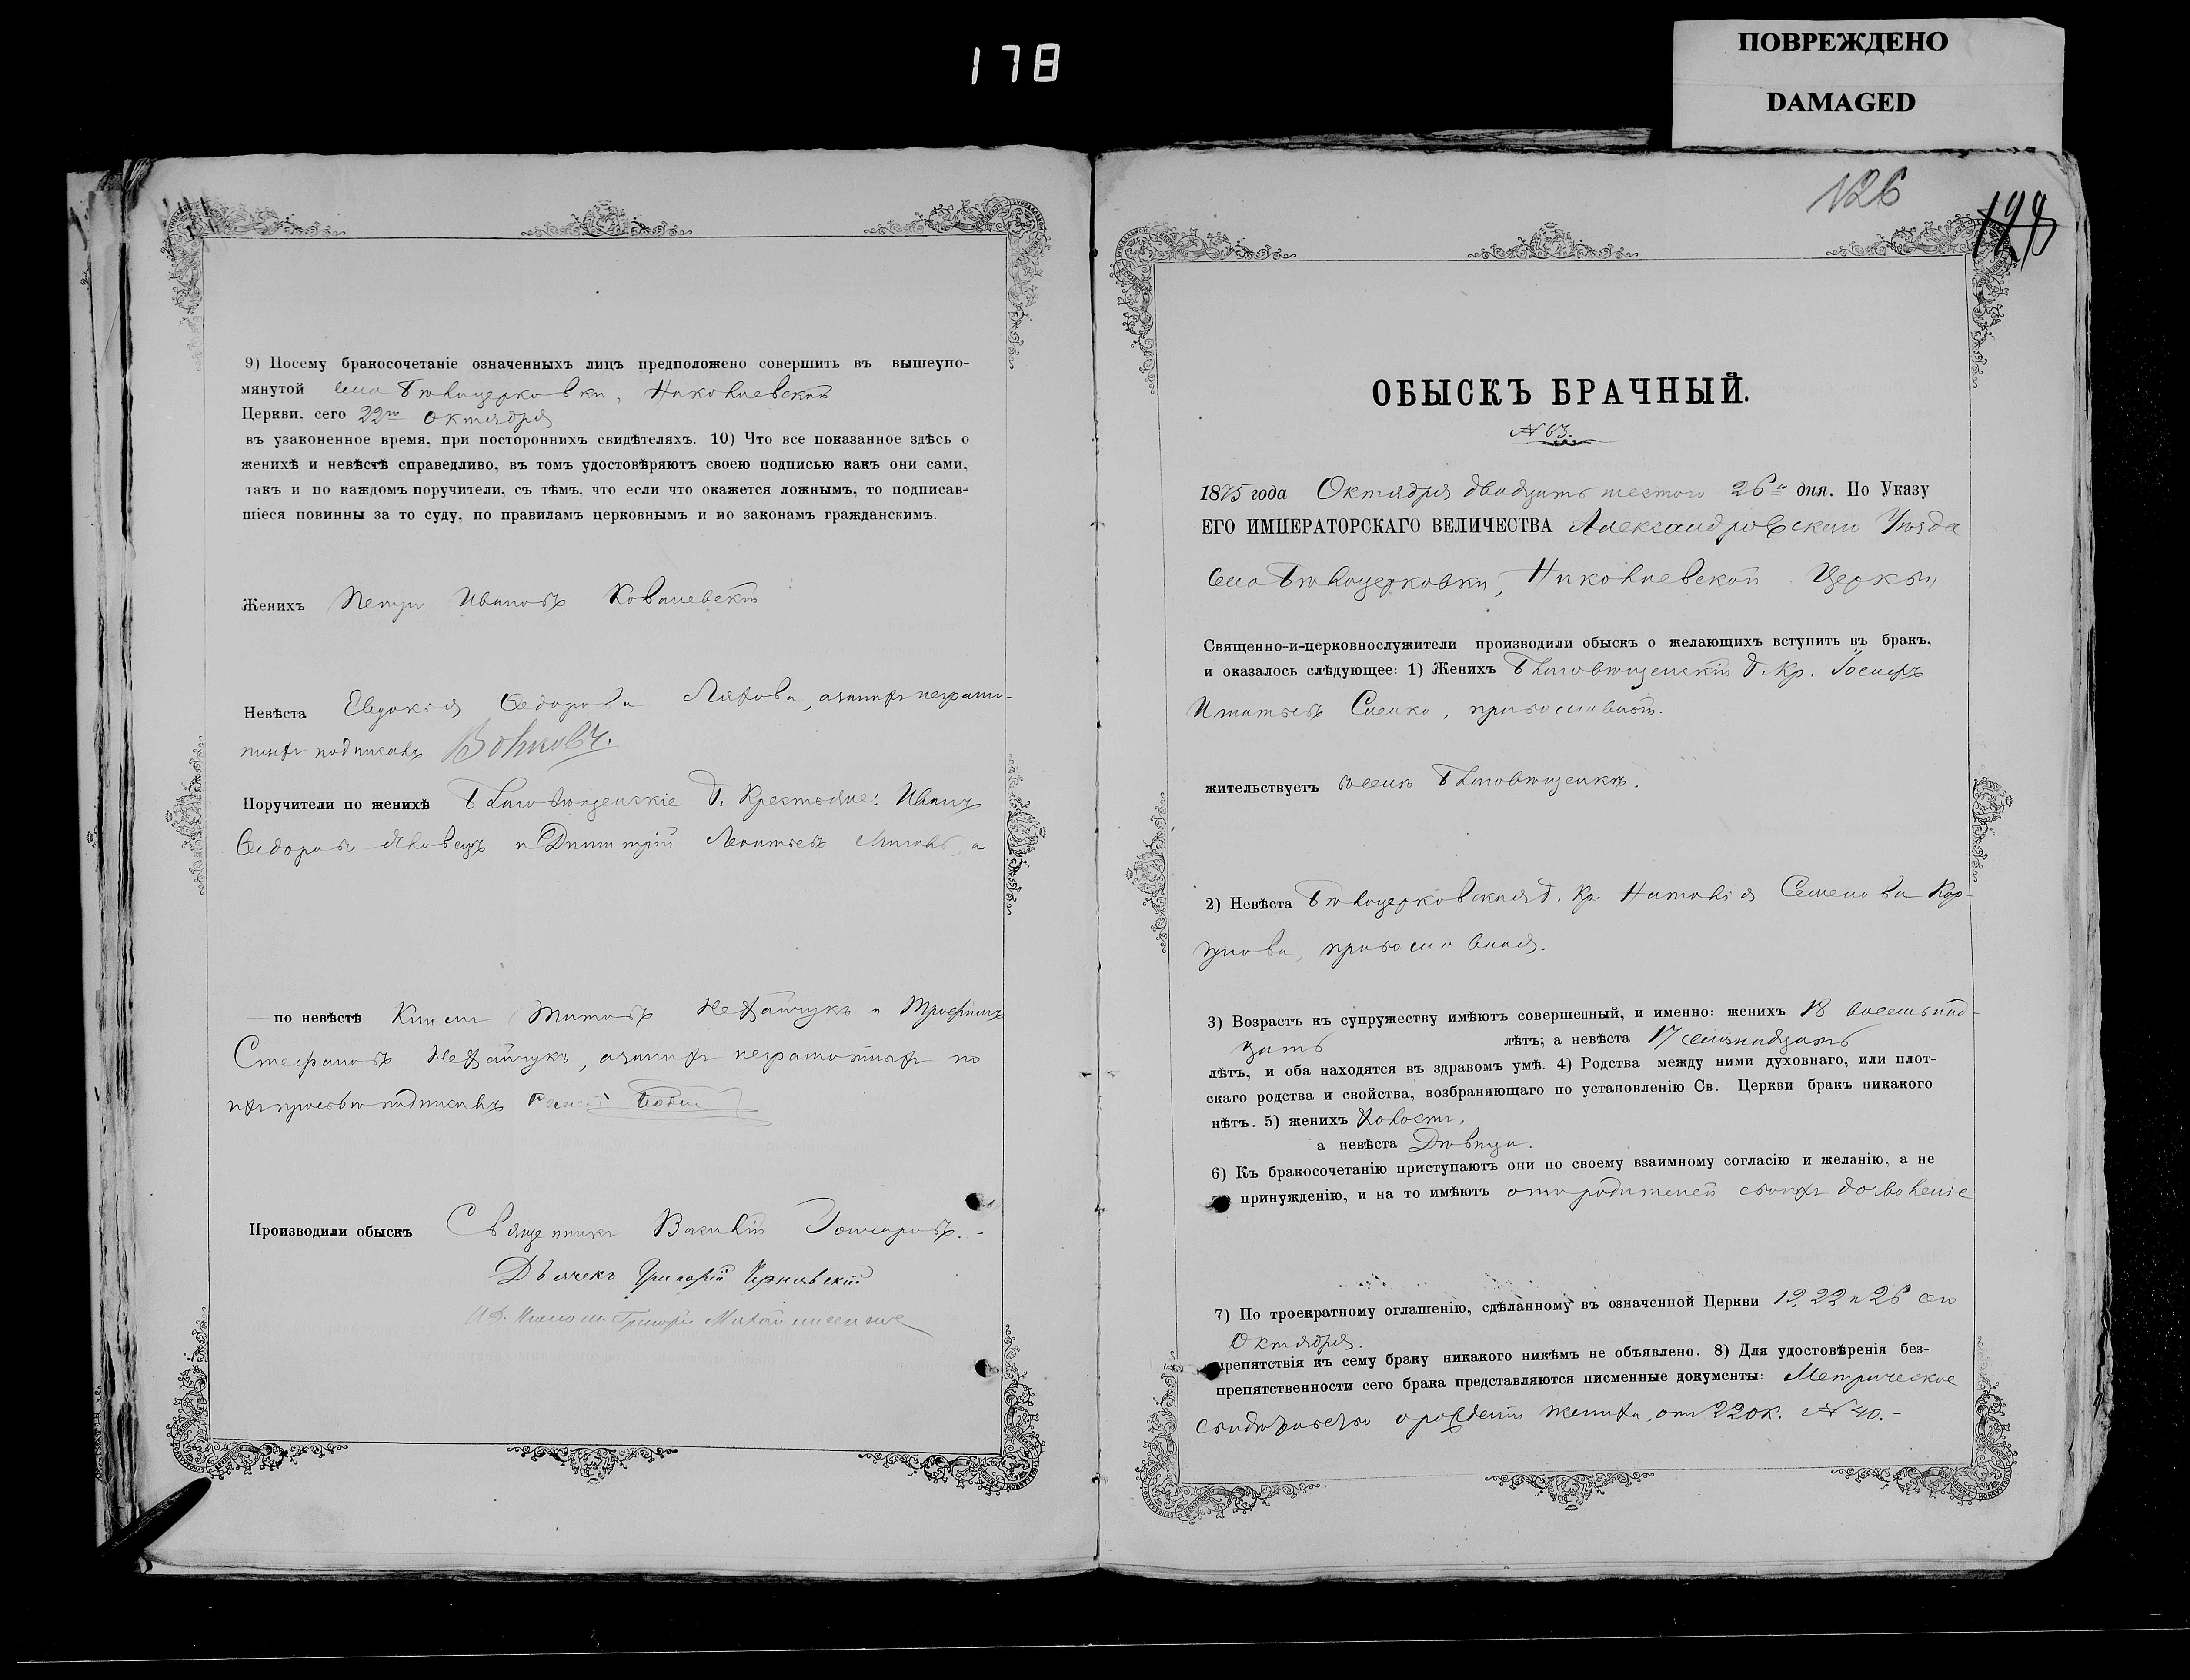 178
ПОВРЕЖДЕНО
DAMAGED
9) Посему бракосочетаніе означенныхъ лицъ предположено совершить въ вышеупо-
мянутой села Бѣлоцерковки, Николаевской
Церкви, сего 22го Октября
въ узаконенное время, при постороннихъ свидѣтеляхъ. 10) Что все показанное здѣсь о
женихѣ и невѣстѣ справедливо, въ томъ удостовѣряютъ своею подписью какъ они сами,
такъ и по каждомъ поручители, съ тѣмъ, что если что окажется ложнымъ, то подписав-
шіеся повинны за то суду, по правиламъ церковнымъ и по законамъ гражданскимъ.
Женихъ Петръ Ивановъ Ковалевскій
Невѣста Евдокія Ѳедорова, а вмѣсто неграмот-
ныхъ подписалъ Волковъ.
Поручители по женихѣ Благовѣщенскіе Г. Крестьяне: Иванъ
Ѳедоровъ Яковецъ и Димитрій Леонтьевъ а
по невѣстѣ Титовъ Нехайчукъ и Трофимъ
Стефановъ Нехайчукъ, неграмотныхъ по
ихъ просьбѣ подписалъ
Производили обыскъ Священникъ Василій Гончаровъ.-
Дьячекъ Григорій Чернявскій
Григорій
126
ОБЫСКЪ БРАЧНЫЙ.
№ 63.
1875 года Октября двадцать шестого 26го дня. По Указу
ЕГО ИМПЕРАТОРСКАГО ВЕЛИЧЕСТВА Александровскаго Уѣзда
Села Бѣлоцерковки, Николаевской Церкви
Священно-и-церковнослужители производили обыскъ о желающихъ вступить въ бракъ,
и оказалось слѣдующее: 1) Женихъ Благовѣщенскій Г. Кр. Іосифъ
Игнатьевъ Слепко, православный.
жительствуетъ въ селѣ Благовѣщенкѣ.
2) Невѣста Бѣлоцерковская Г. Кр. Наталія Семенова Кор-
православная.
3) Возрастъ къ супружеству имѣютъ совершенный, и именно: женихъ 18 восемьнад-
цать лѣтъ; а невѣста 17 семьнадцать
лѣтъ, и оба находятся въ здравомъ умѣ. 4) Родства между ними духовнаго, или плот-
скаго родства и свойства, возбраняющаго по установленію Св. Церкви бракъ никакого
нѣтъ. 5) женихъ Холостъ,
а невѣста Дѣвица.
6) Къ бракосочетанію приступаютъ они по своему взаимному согласію и желанію, а не
принужденію, и на то имѣютъ отъ родителей своихъ дозволеніе
7) По троекратному оглашенію, сдѣланному въ означенной Церкви 12, 22 и 26 сего
Октября.
препятствія къ сему браку никакого никѣмъ не объявлено. 8) Для удостовѣренія без-
препятственности сего брака представляются писменные документы: Метрическое
свидѣтельство о рожденіи жениха, отъ 22 ок. № 40.-